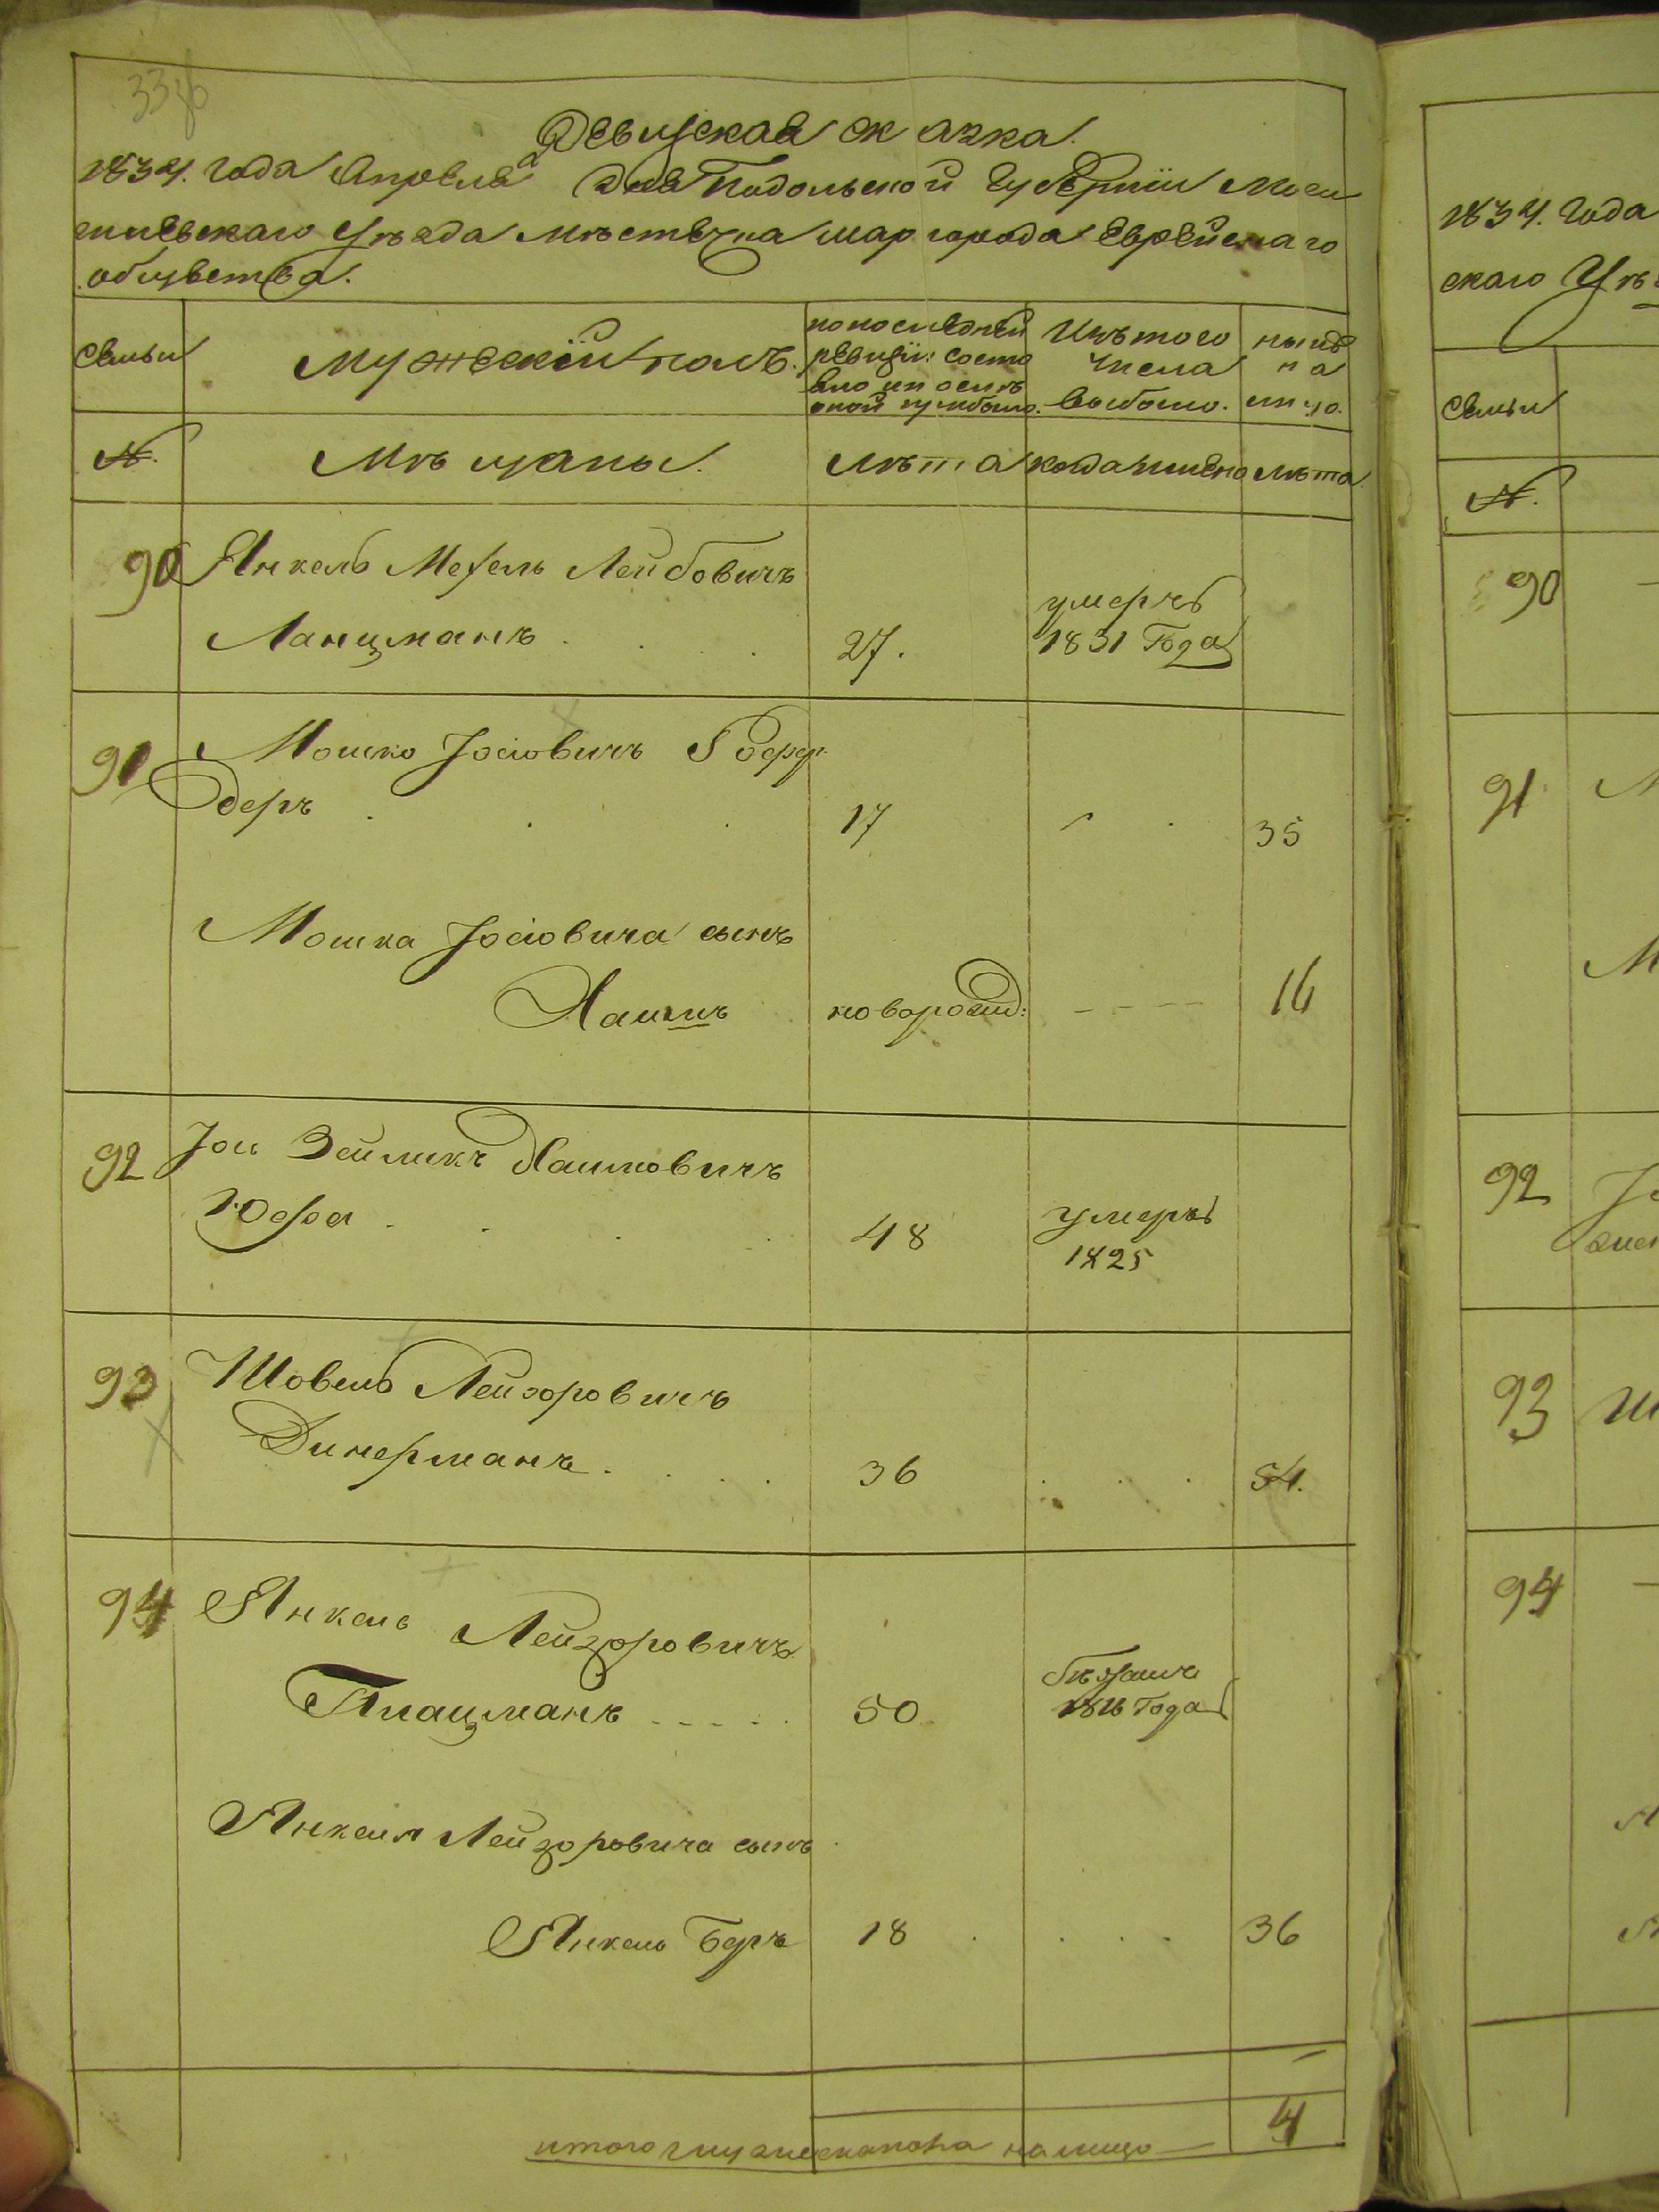 Ревизская сказка.
1834. года Апреля 2 дня Подольской Губернїи Моги
левскаго Уѣзда мѣстечка шаргорода Еврейскаго
общества.
Семьи
Мужескїй полъ.
по последней
ревизїи: состо
яло
Изъ того
числа
выбыло.
нынѣ
на
лицо.
№.
Мѣщаны.
Лѣта
когда имено
лѣта
90
Янкель Мехель Лейбовичъ
Ланцманъ
27.
умеръ
1831 Года
91
Мошко Іосіовичъ
деръ
17
35
Мошка Іосіовича сынъ
Хаимъ
новорожд:
16
92
Іось Зейликъ Хаимовичъ
48
умеръ
1825
93
Шовель Лейзоровичъ
Динерманъ
36
54.
94
Янкель Лейзоровичъ
Плацманъ
50
18 Года
Янкеля Лейзоровича сынъ
Янкель Беръ
18
36
итого мужескапола налицо
4
1834. Года
скаго Уѣз
Семьи
№.
90
91
М
М
92
93
Ш
94